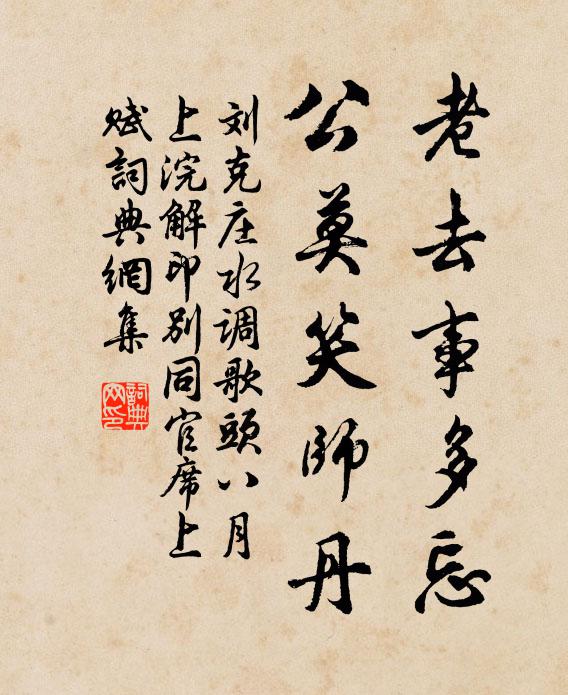 老去事多忘
公莫笑師丹
刘克庄水调歌頭八月
上浣解印别同官席上
赋詞典網集
詞典
网印